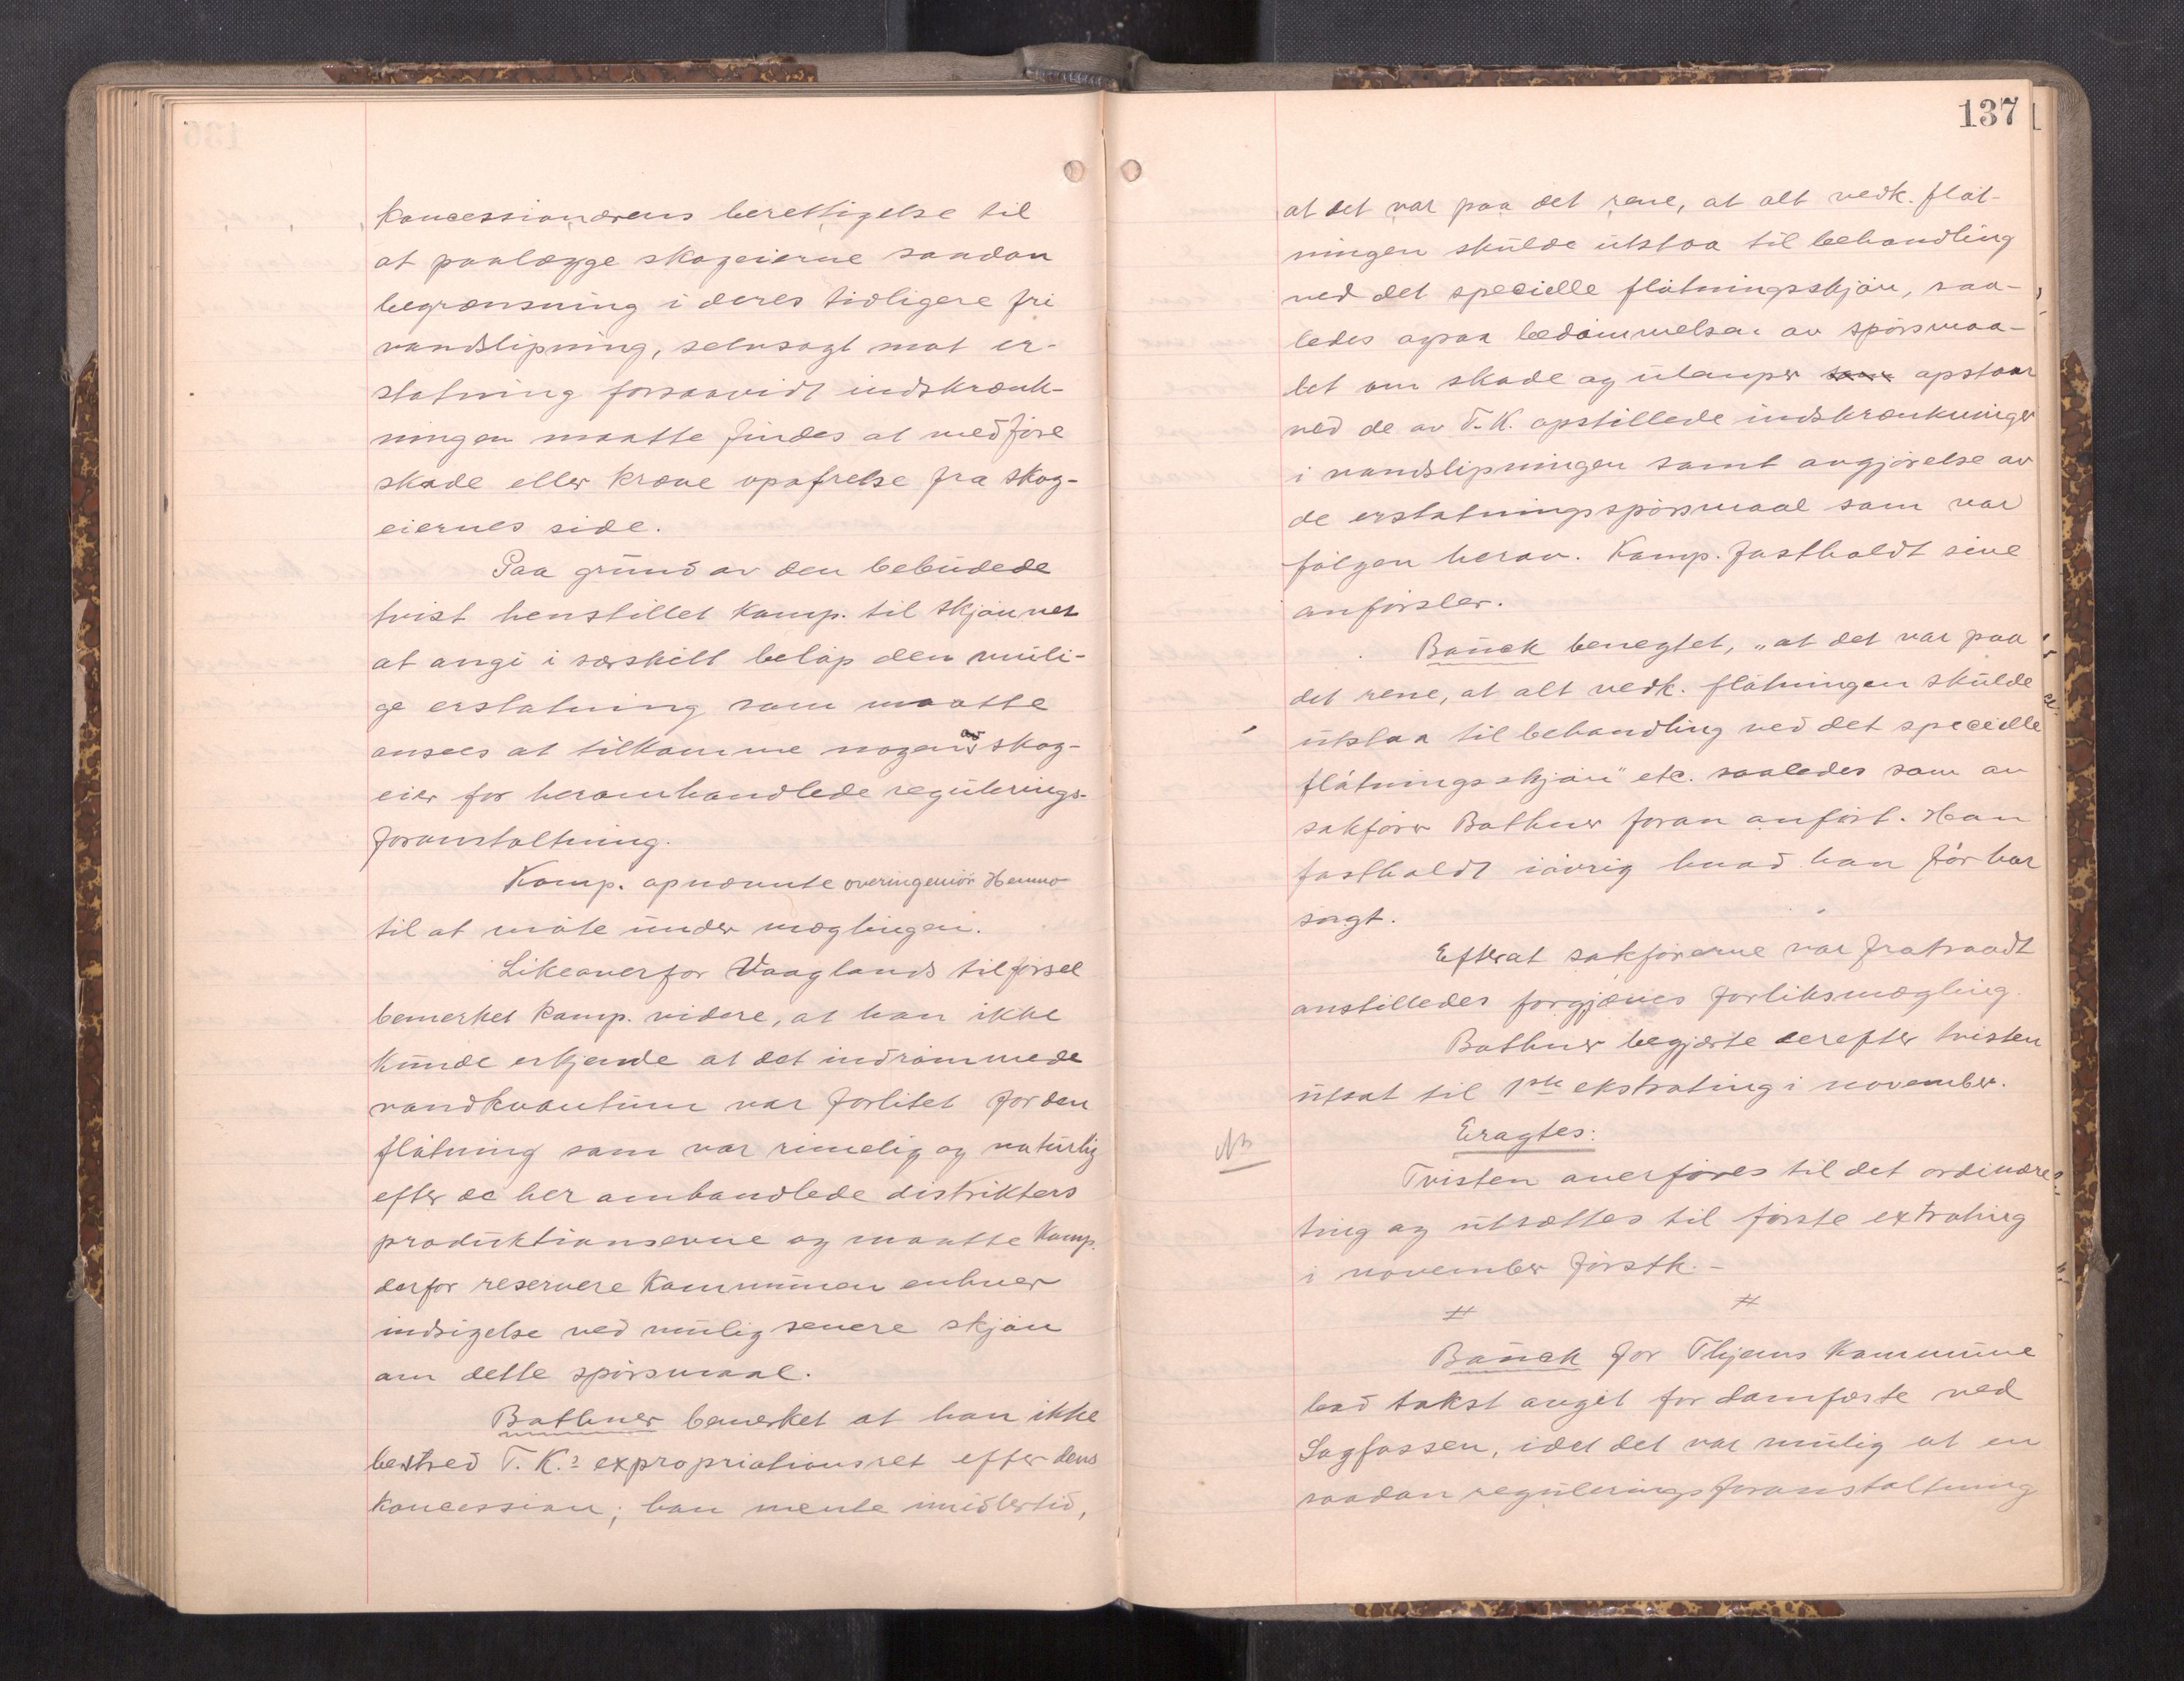 koncessionærens berettigelse til
at paalægge skogeierne saadan
begrænsning i deres tidligere fri
vandslipning, selvsagt mot er-
statning forsaavidt indskrænk-
ningen maatte findes at medføre
skade eller kræve opofrelse fra skog-
eiernes side.
Paa grund av den bebudede
tvist henstillet Komp. til skjønnet
at angi i særskilt beløp den muli-
ge erstatning som maatte
ansees at tilkomme nogen av skog-
eier for heromhandlede regulerings-
foranstaltning.
Komp. opnævnte overingeniør Henno
til at møte under mæglingen.
Likeoverfor Vaaglands tilførsel
bemerket Komp. videre, at han ikke
kunde erkjende at det indrømmede
vandkvantum var forlitet for den
fløtning som var rimelig og naturlig
efter de her omhandlede distrikters
produktionsevne og maatte Komp.
derfor reservere Kommunen enhver
indsigelse ved mulig senere skjøn
om dette spørsmaal.
Bathner bemerket at han ikke
bestred T. K.s expropriationsret efter dens
koncession; han mente imidlertid,
137
at det var paa det rene, at alt vedk. fløt-
ningen skulde utstaa til behandling
ved det specielle fløtningsskjøn, saa-
ledes ogsaa bedømmelsen av spørsmaa-
let om skade og ulemper som opstaar
ved de av T. K. opstillede indskrænkninger
i vandslipningen samt avgjørelse av
de erstatningsspørsmaal som var
følgen herav. Komp. fastholdt sine
anførsler.
Bauck benegtet, „at det var paa
det rene, at alt vedk. fløtningen skulde
utstaa til behandling ved det specielle
fløtningsskjøn" etc. saaledes som av
sakfører Bathner foran anført. Han
fastholdt iøvrig hvad han før har
sagt.
Efterat sakførerne var fratraadt
anstilledes forgjæves forliksmægling.
Bathner begjærte derefter tvisten
utsat til 1ste ekstrating i november.
NB
Eragtes:
Tvisten overføres til det ordinære
ting og utsættes til første extrating
i november førstk. -
# #
Bauck for Thjems Kommune
bad takst avgit for damfæste ved
Sagfossen, idet det var mulig at en
saadan reguleringsforanstaltning